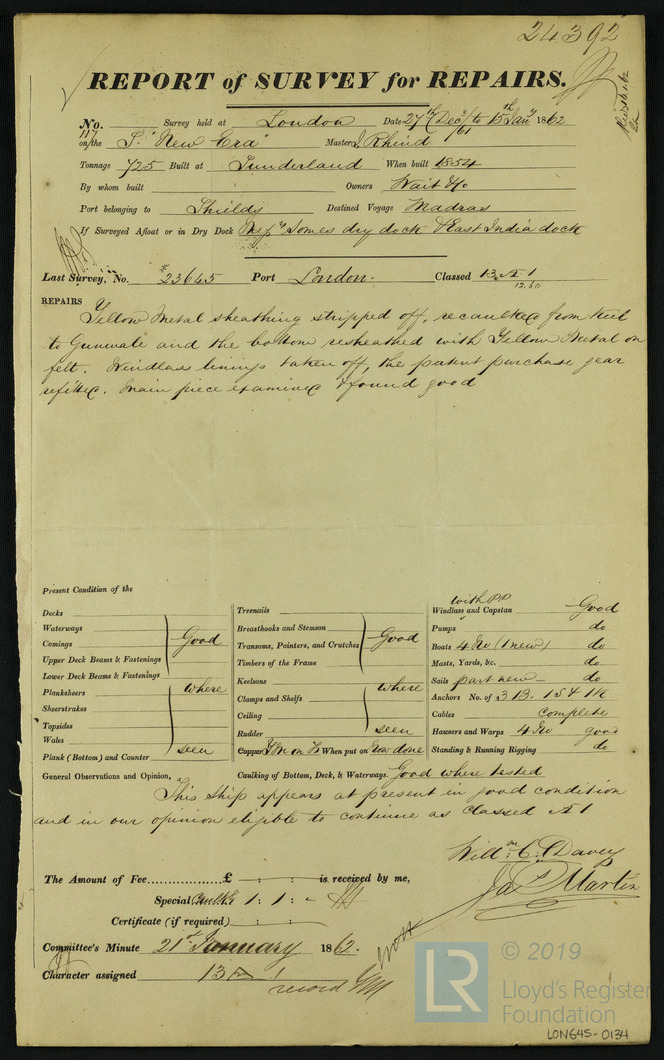 24392
REPORT of SURVEY for REPAIRS.
No. 117 Survey held at London Date 27th Decr/61 to 15th Jany 1862
on the S. "New Era" Master J. Rhind
Tonnage 725 Built at Sunderland When built 1854
By whom built Owners Wait & Co
Port belonging to Shields Destined Voyage Madras
If Surveyed Afloat or in Dry Dock Somes dry dock & East India dock
Last Survey, No. 23645 Port London. Classed 13 A 1
12.60
REPAIRS Yellow Metal sheathing stripped off, recaulked from keel
to Gunwale and the bottom resheathed with Yellow Metal on
felt. Windlass linings taken off, the patent purchase gear
refitted. Main piece examined & found good
Present Condition of the
Decks
Waterways
Comings
Upper Deck Beams & Fastenings
Good
Lower Deck Beams & Fastenings
Planksheers
where
Sheerstrakes
Topsides
Wales
Plank (Bottom) and Counter
seen
Treenails
Breasthooks and Stemson
Transoms, Pointers, and Crutches
Good
Timbers of the Frame
Keelsons
where
Clamps and Shelfs
Ceiling
Rudder
seen
Copper YM on F When put on Now done
with PP
Windlass and Capstan Good
Pumps do
Boats 4 No (1 new) do
Masts, Yards, &c. do
Sails part new do
Anchors No. of 3 B. 1 S & 1 K
Cables complete
Hawsers and Warps 4 No good
Standing & Running Rigging do
General Observations and Opinion, Caulking of Bottom, Deck, & Waterways. Good where tested
This ship appears at present in good condition
and in our opinion eligible to continue as classed A 1
Willm. C. Davey
Jas Martin
The Amount of Fee £ : : is received by me,
Special 1 : 1 : -
Certificate (if required) : :
Committee's Minute 21st January 1862.
Character assigned 13 A 1
record
LR
© 2019
Lloyd's Register
Foundation
LON645-0134